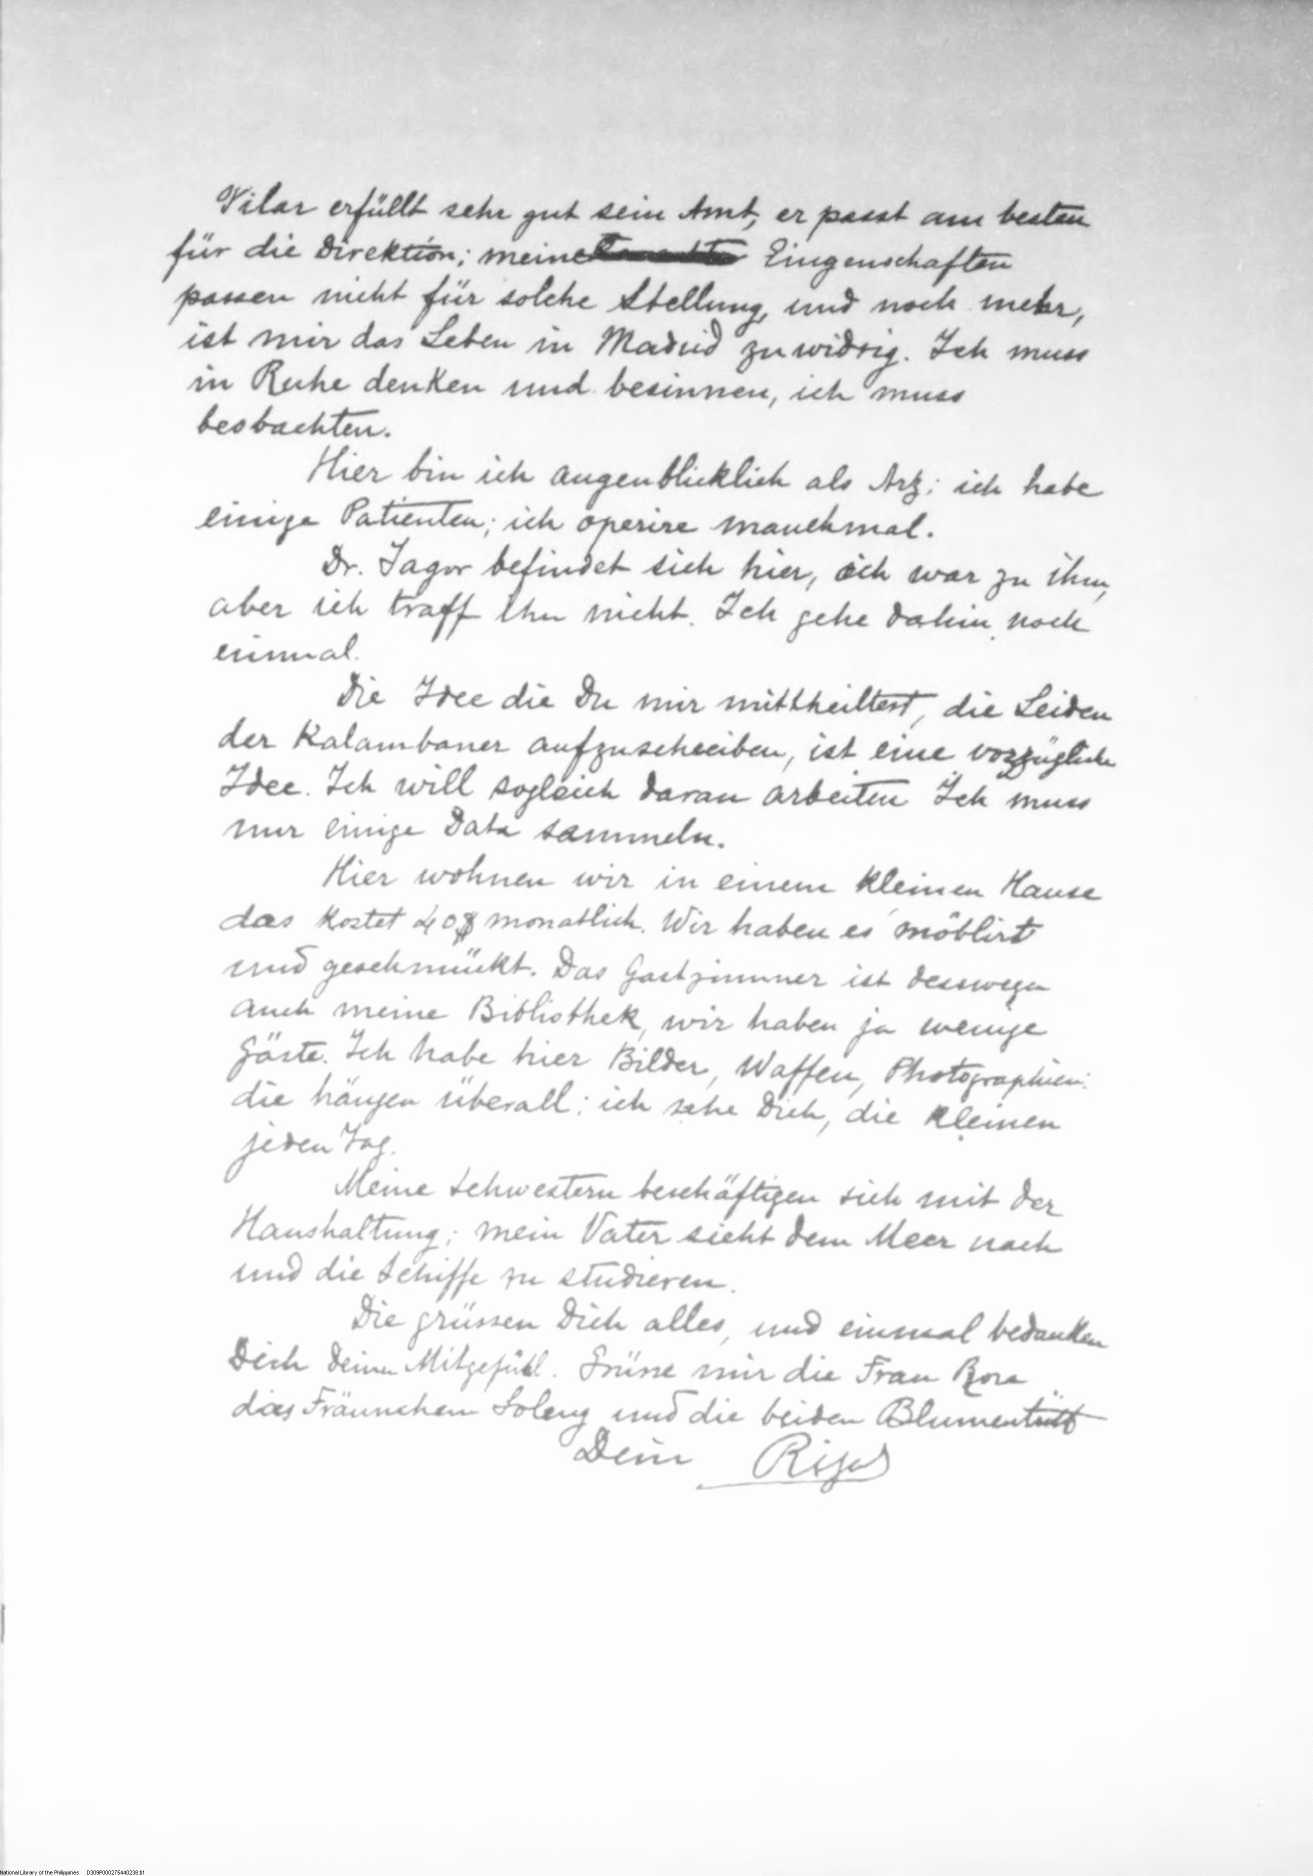 Vilar erfüllt sehr gut sein Amt, er passt am besten
für die Direktion; meine Eingenschaften
passen nicht für solche Stellung, und noch mehr,
ist mir das Leben in Madrid zu widrig. Ich muss
in Ruhe denken und besinnen, ich muss
beobachten.
Hier bin ich augenblicklich als Arz; ich habe
einige Patienten; ich operire manchmal.
Dr. Jagor befindet sich hier, ich war zu ihm,
aber ich traff ihn nicht. Ich gehe dahin noch
einmal.
Die Idee die Du mir mittheiltest, die Leiden
der Kalambaner aufzuschreiben, ist eine vorzügliche
Idee. Ich will sogleich daran arbeiten Ich muss
nur einige Data sammeln.
Hier wohnen wir in einem kleinen Hause
das kostet 40$ monatlich. Wir haben es möblirt
und geschmückt. Das Gastzimmer ist desswegen
auch meine Bibliothek, wir haben ja wenige
Gäste. Ich habe hier Bilder, Waffen, Photographien:
die hängen überall; ich sehe Dich, die Kleinen
jeden Tag.
Meine Schwestern beschäftigen sich mit der
Haushaltung; mein Vater sieht dem Meer nach
und die Schiffe zu studieren.
Die grüssen Dich alles, und einmal bedanken
Dich Deinen Mitgefühl. Grüsse mir die Frau Rosa
das Fräunchen Loleng und die beiden Blumentritt
Dein Rizal
National Library of the Philippines